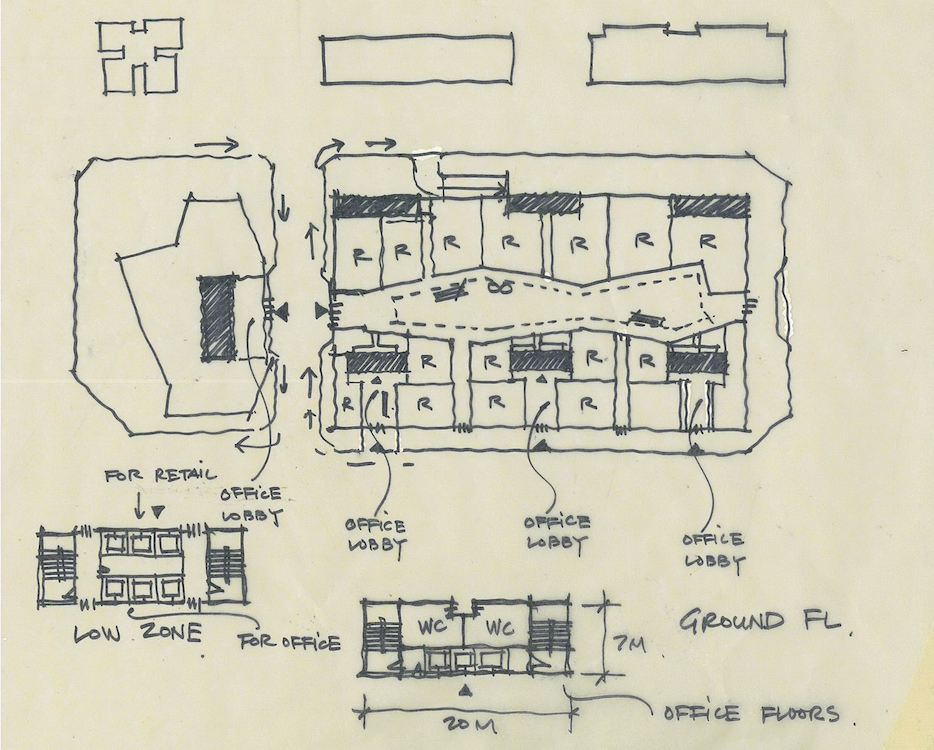 R R R R R R R
R R R
R R R R
FOR RETAIL
OFFICE
LOBBY
OFFICE
LOBBY
OFFICE
LOBBY
OFFICE
LOBBY
LOW ZONE
FOR OFFICE
WC WC
7M
GROUND FL.
20M
OFFICE FLOORS.